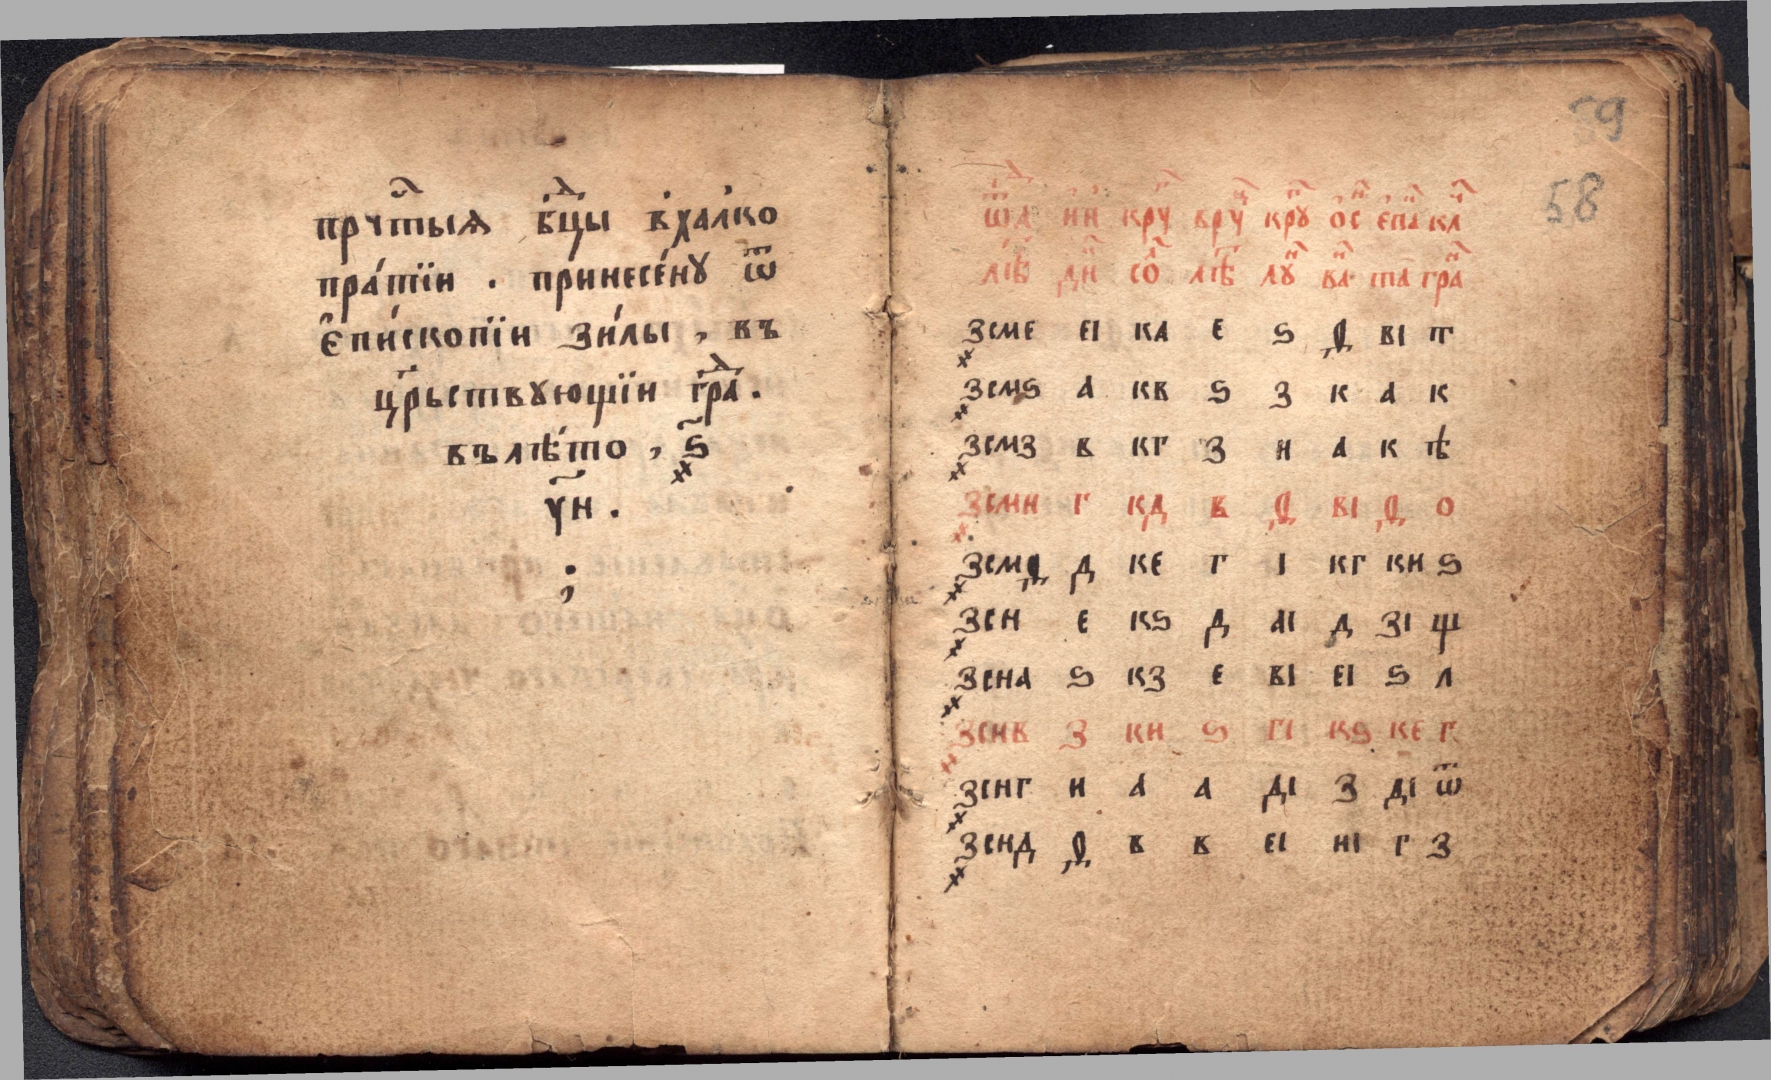 прчⷭ҇тыѧ бцⷣы в҆ халко
пра́тїи . принесе́нꙋ ѿ
є҆пи́скопїи зи́лы , въ
црⷭ҇ьствꙋющїи гра́ⷣ .
вълѣ́то , ҂ѕ҃
у҃и .
;
59
58
ѿ инⷣ крꙋ врꙋ крꙋ ѻс єпа кл
лѣ дн со лѣ лꙋ ва та гра
҂зсме еі ка е ѕ ѳ ві т
҂зсмѕ а кв ѕ з к а к
҂зсмз в кг з и а к ѣ
҂зсми г кд в ѳ ві ѳ о
҂зсмѳ д ке г і кг ки ѕ
҂зсн е кѕ д аі д зі ѱ
҂зсна ѕ кз е ві еі ѕ л
҂зснв з ки ѕ гі кѕ ке г
҂зснг и а а ді з ді ѿ
҂зснд ѳ в в еі иі г з